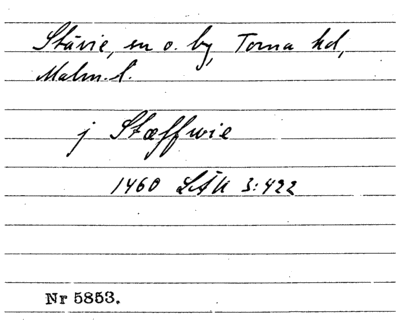 Stävie, sn o. by, Torna hd,
Malm. l.
j Stæffwie
1460 LÄU 3:422
Nr 5853.